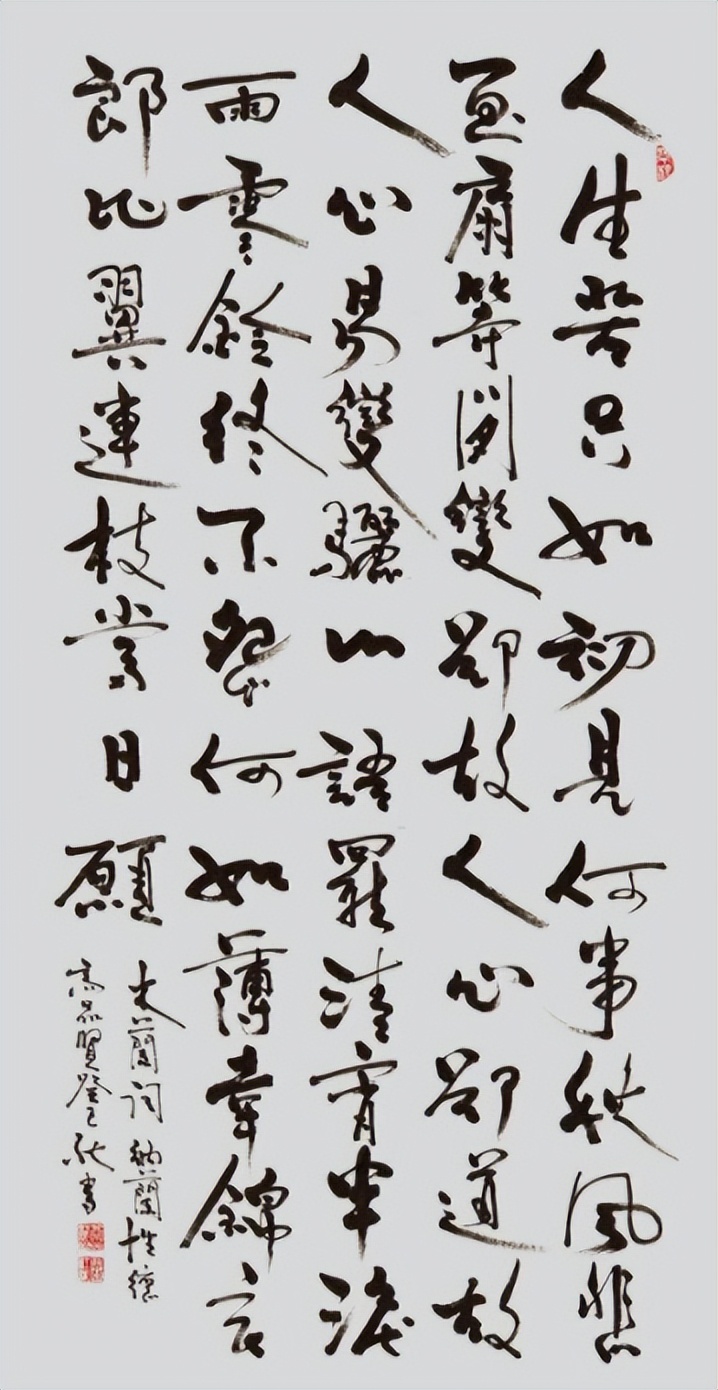 人生若只如初見何事秋風悲
畫扇等閑變卻故人心卻道故
人心易變驪山語罷清宵半淚
雨零鈴終不怨何如薄幸錦衣
郎比翼連枝當日願
木蘭詞納蘭性德
高品賢癸巳秋書